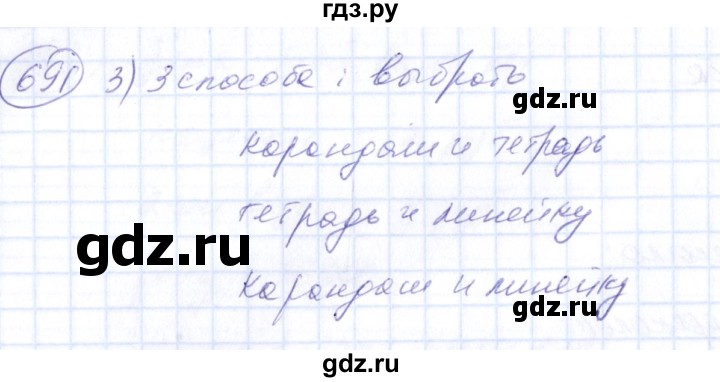 гдз.ру
691 3) 3 способа : выбрать
gdz.ru
карандаш и тетрадь
тетрадь и линейку
gdz.ru
gdz.ru
карандаш и линейку
gdz.ru